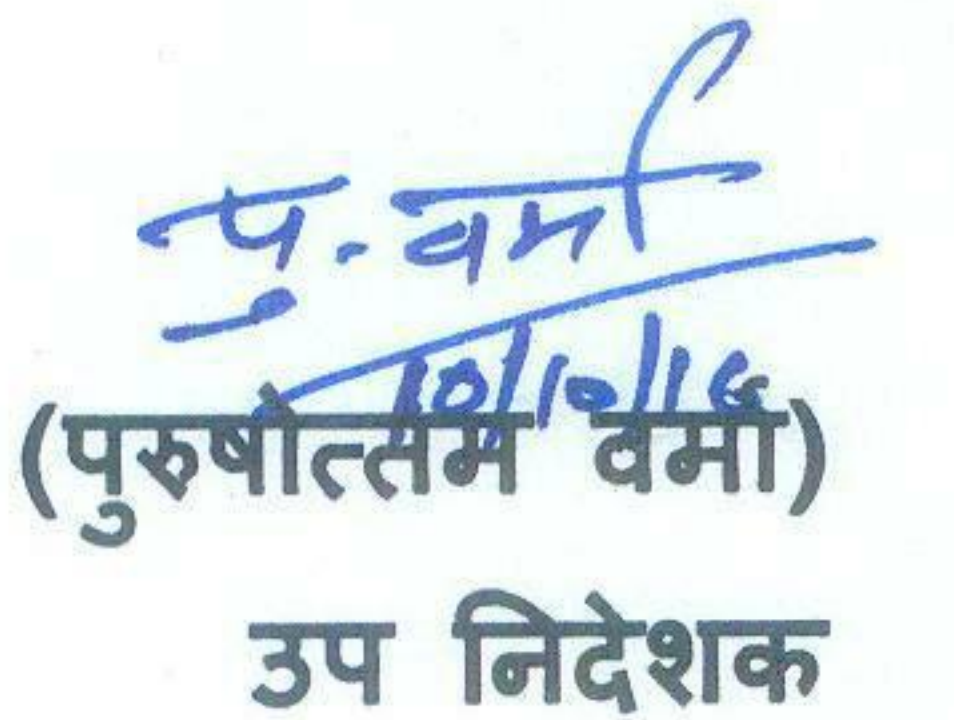 पु. वर्मा
10/10/16
(पुरुषोत्तम वर्मा)
उप निदेशक